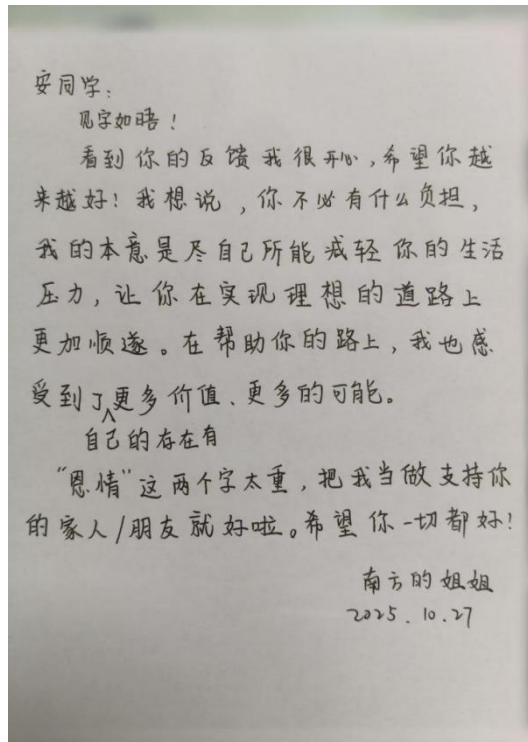 安同学：
见字如晤！
看到你的反馈我很开心，希望你越
来越好！我想说，你不必有什么负担，
我的本意是尽自己所能减轻你的生活
压力，让你在实现理想的道路上
更加顺遂。在帮助你的路上，我也感
受到了更多价值、更多的可能。
自己的存在有
“恩情”这两个字太重，把我当做支持你
的家人/朋友就好啦。希望你一切都好！
南方的姐姐
2025.10.27